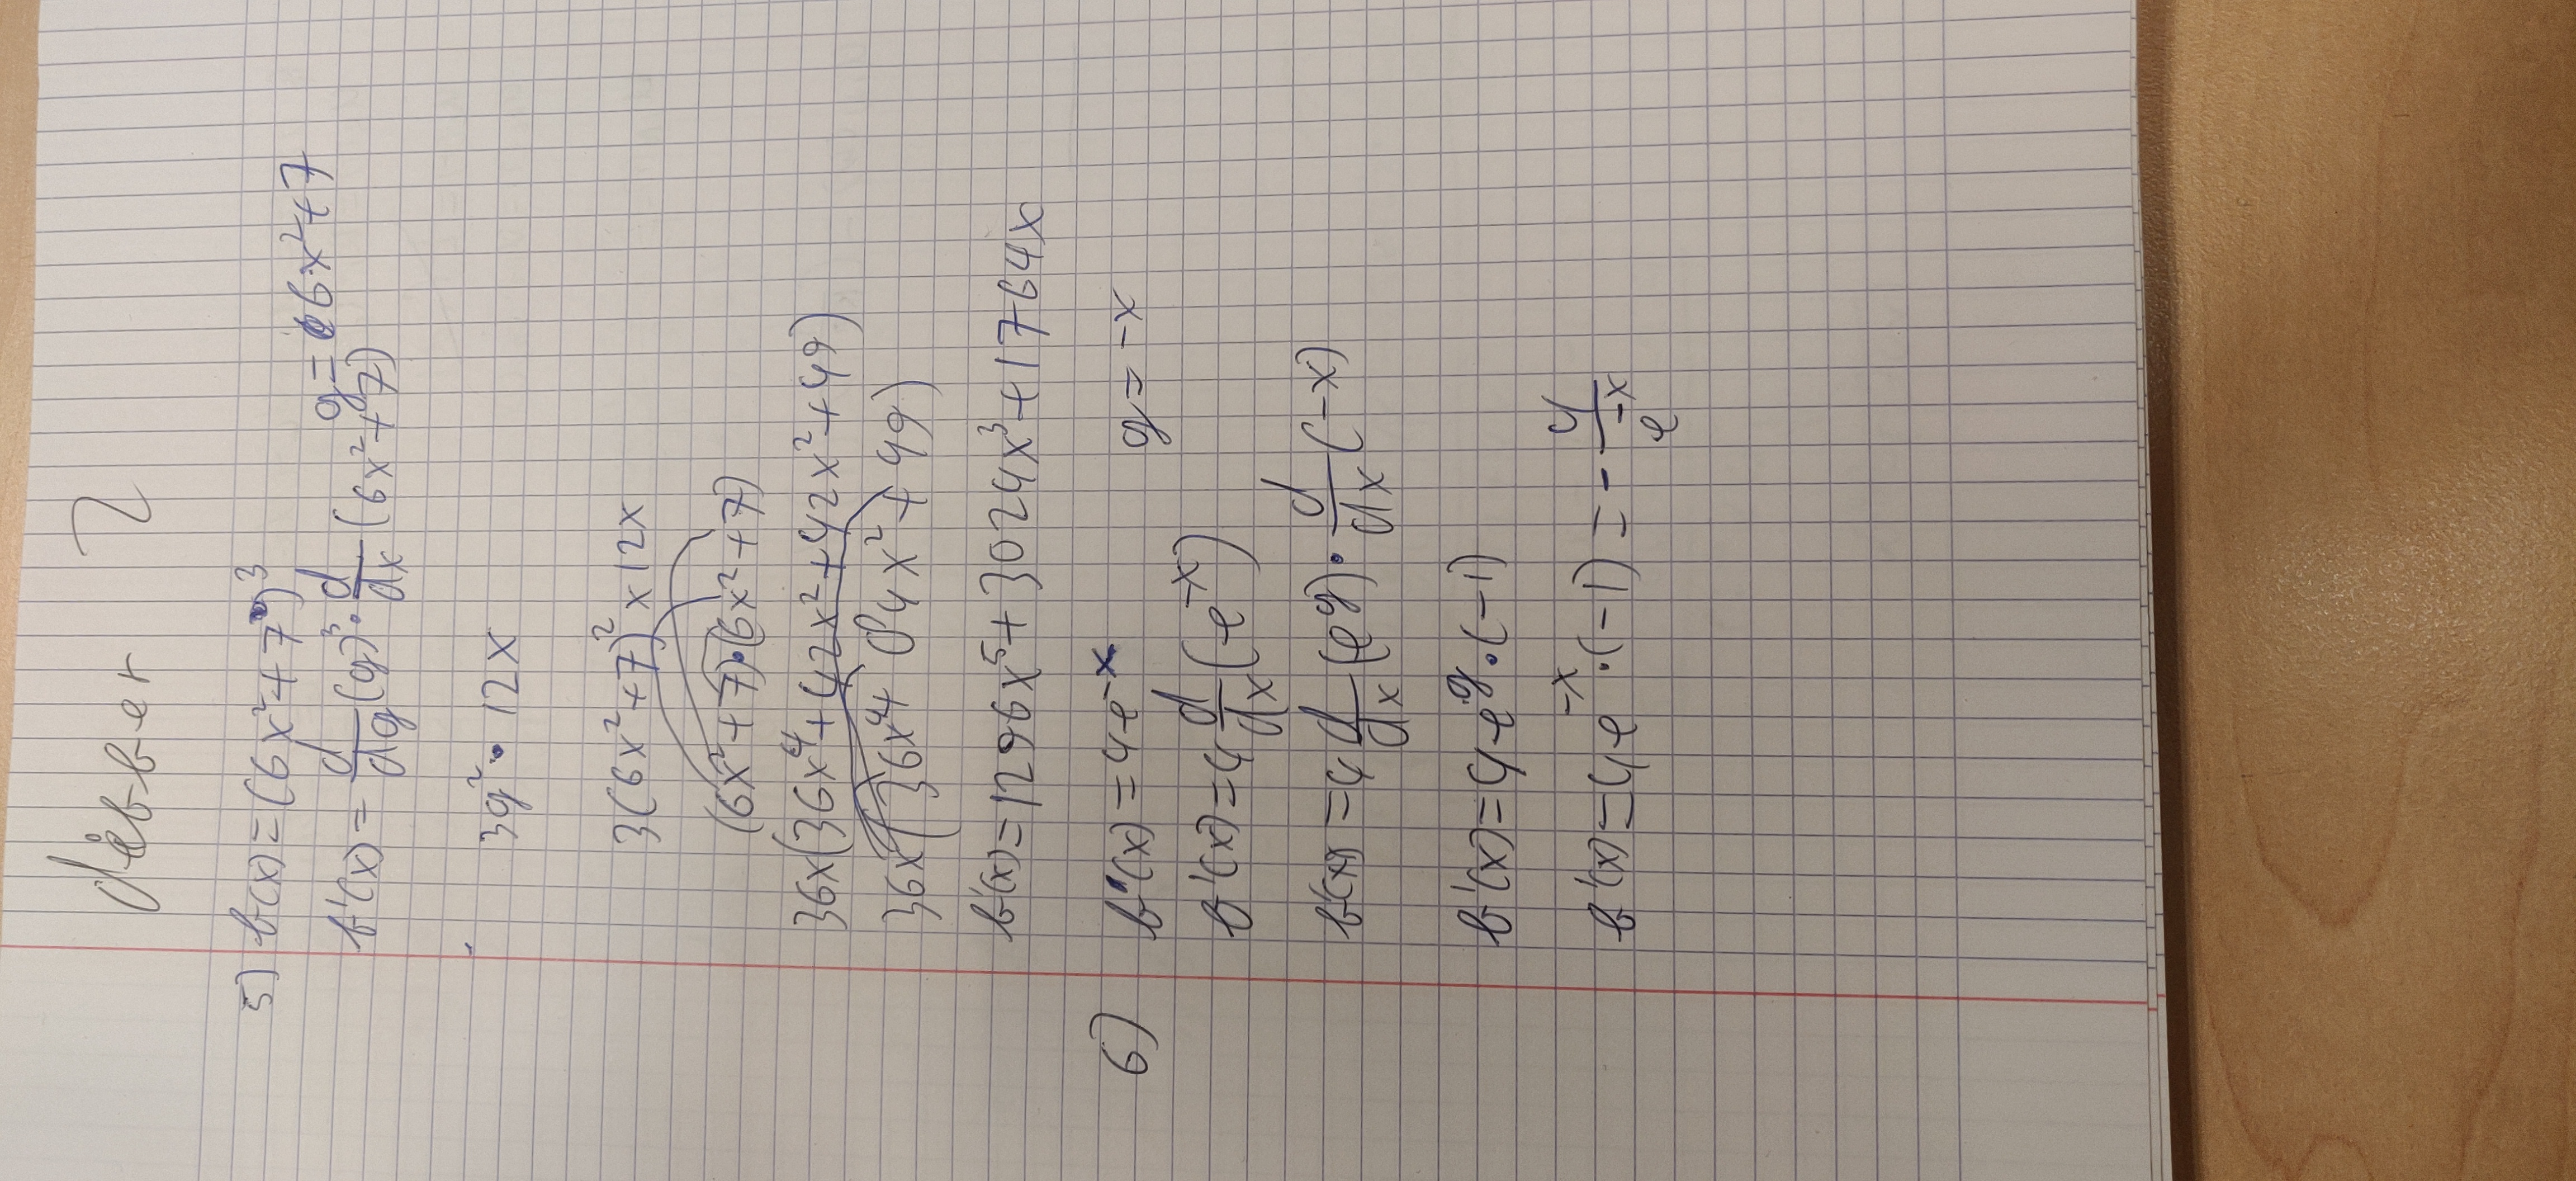 differ 2
5) f(x) = (6x² + 7)³
g = 6x² + 7
f'(x) = d/dg (g)³ · d/dx (6x² + 7)
3g² · 12x
3(6x² + 7)² x 12x
(6x² + 7)·(6x² + 7)
36x(36x⁴ + 42x² + 42x² + 49)
36x(36x⁴ + 84x² + 49)
f'(x) = 1296x⁵ + 3024x³ + 1764x
6) f(x) = 4e^-x
g = -x
f'(x) = 4 d/dx (e^-x)
f'(x) = 4 d/dx (e^g) · d/dx (-x)
f'(x) = 4e^g · (-1)
f'(x) = 4e^-x · (-1) = - 4/e^-x